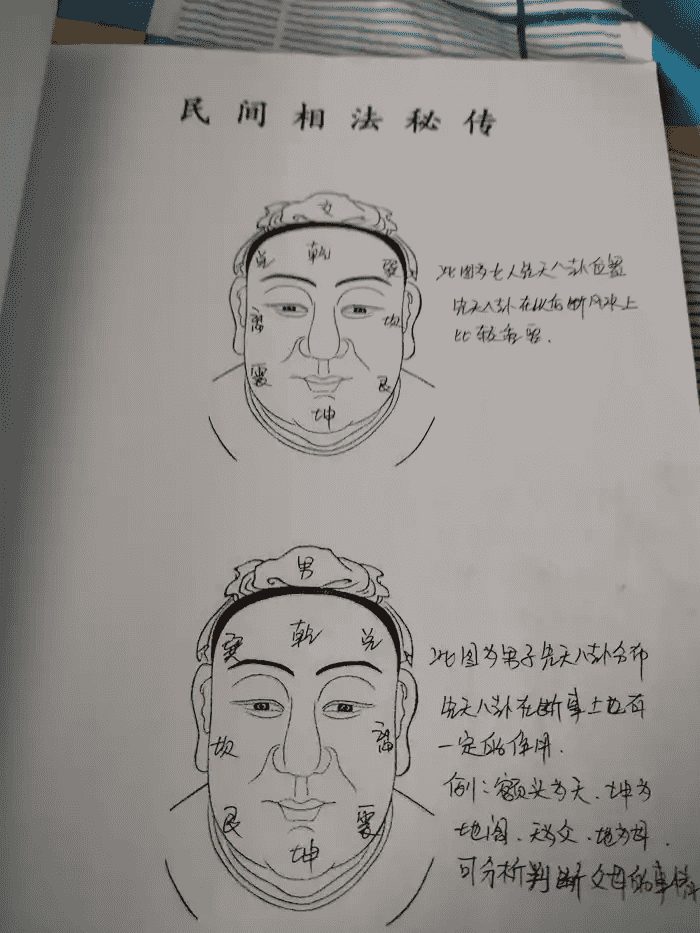 民间相法秘传
女
兑 乾 巽
离 坎
震 艮
坤
此图为女人先天八卦位置
先天八卦在以后断风水上
比较重要.
男
巽 乾 兑
坎 离
艮 震
坤
此图为男子先天八卦分布
先天八卦在断事上也有
一定的作用.
例:额头为天、坤为
地阁.天为父.地为母.
可分析判断父母的事情